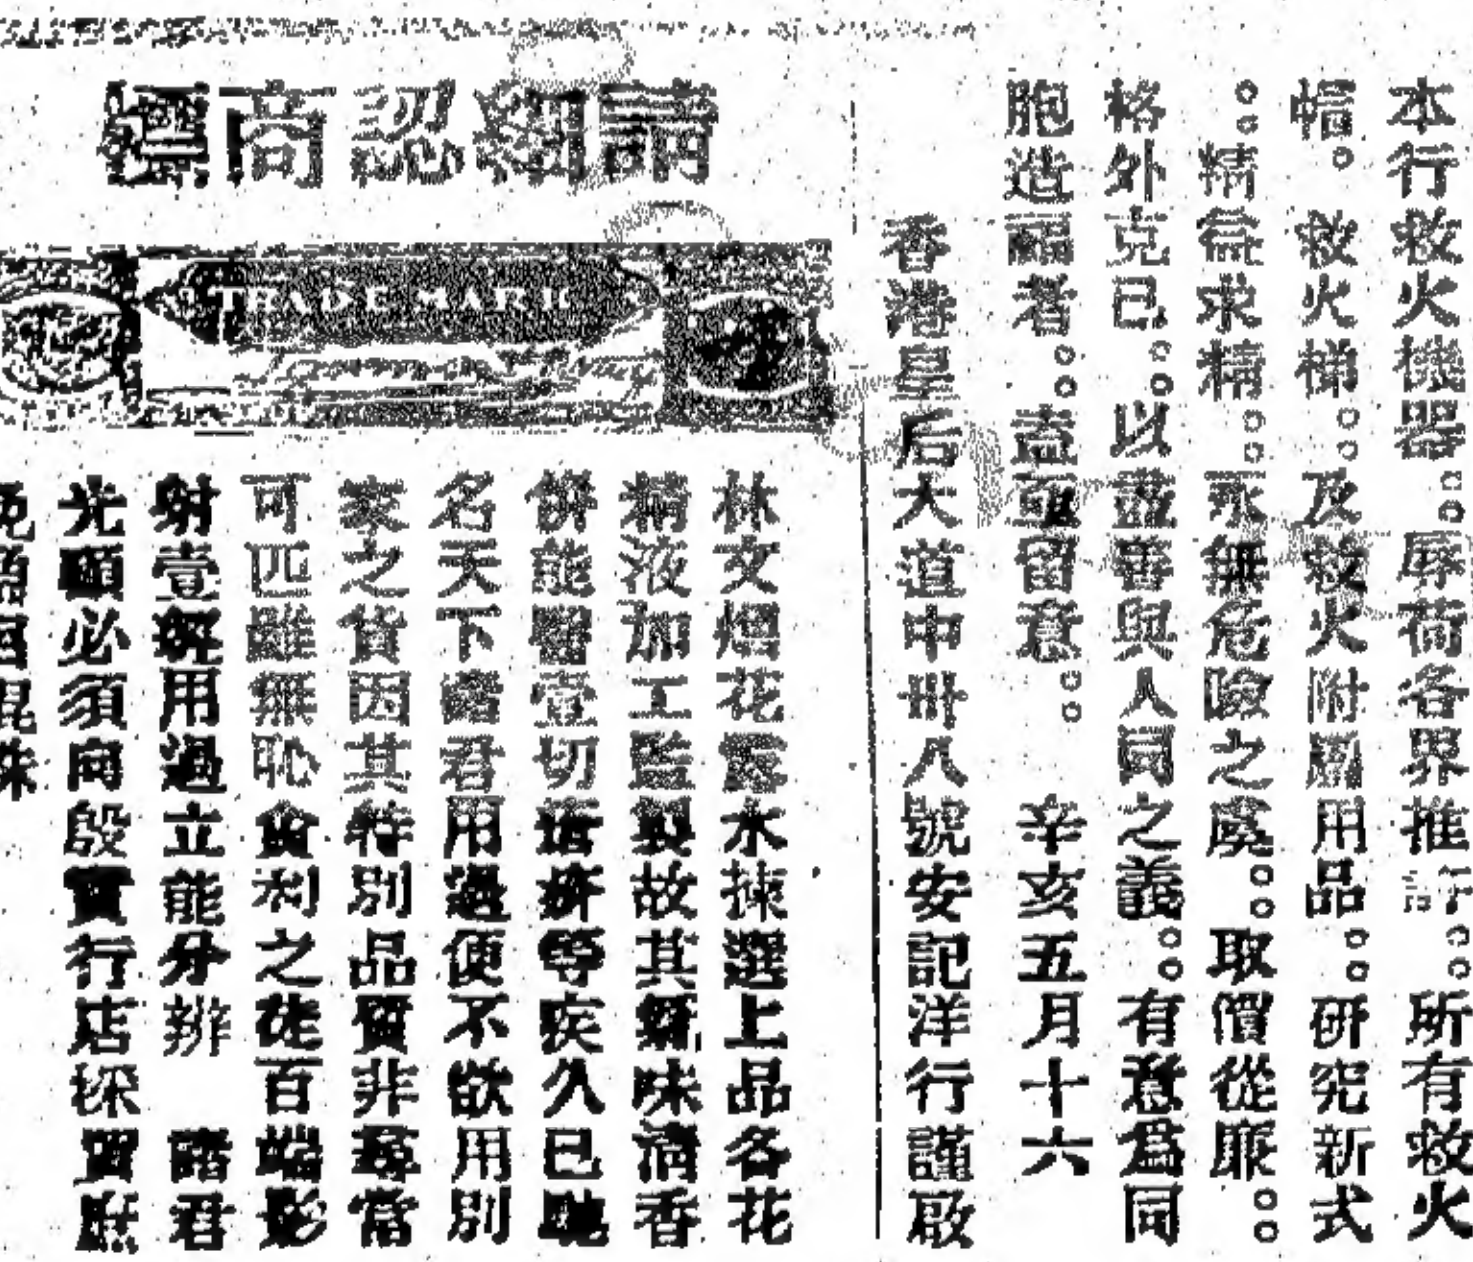 本行救火機器。。辱荷各界推許。。所有救火
帽。救火梯。。及救火附屬用品。。研究新式
。。精益求精。。永無危險之虞。。取價從廉。。
格外克己。。以盡善與人同之義。。有意為同
胞造福者。。盍亟留意。。 辛亥五月十六
香港皇后大道中卅八號安記洋行謹啟
請細認商標
TRADE MARK
林文烟花露水揀選上品各花
精液加工監製故其馨味清香
併能醫壹切痧疥等疾久已馳
名天下諸君用過便不欲用別
家之貨因其特別品質非尋常
可匹雖無恥貪利之徒百端影
射壹經用過立能分辨 諸君
光顧必須向殷實行店採買庶
免